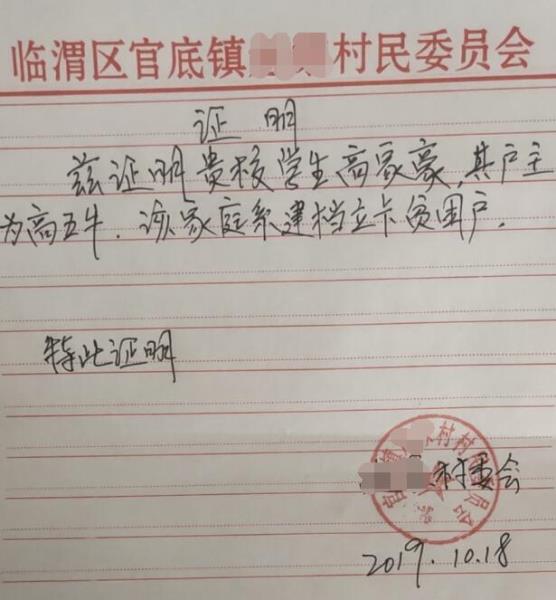 临渭区官底镇 村民委员会
证 明
兹证明贵校学生高家豪,其户主
为高五牛.该家庭系建档立卡贫困户.
特此证明
村委会
2019.10.18